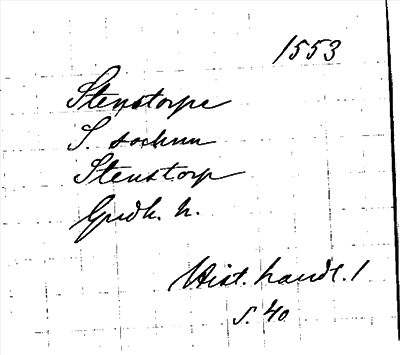 1553
Stenstorpe
S. socknn
Stenstorp
Gudh. h.
Hist. handl. 1
s. 40